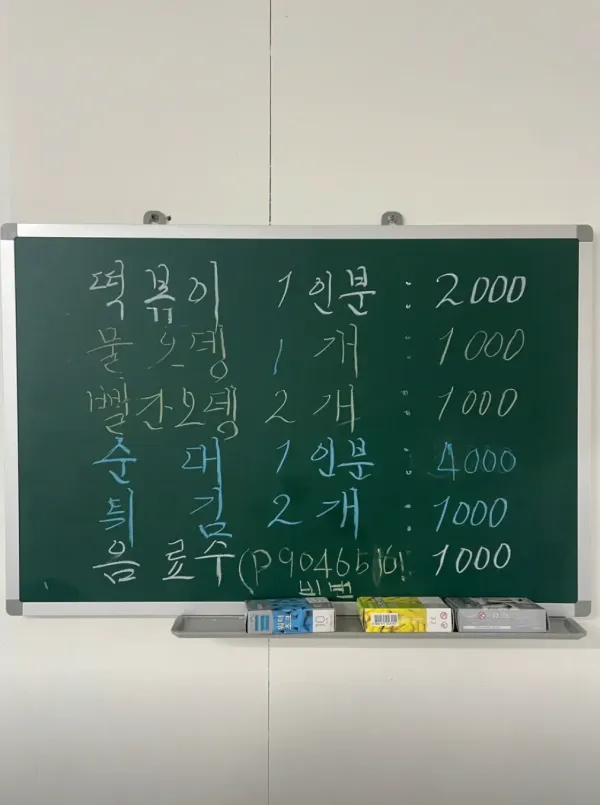 떡볶이 1인분 : 2000
물오뎅 1개 : 1000
빨간오뎅 2개 : 1000
순대 1인분 : 4000
튀김 2개 : 1000
음료수 1000
비번